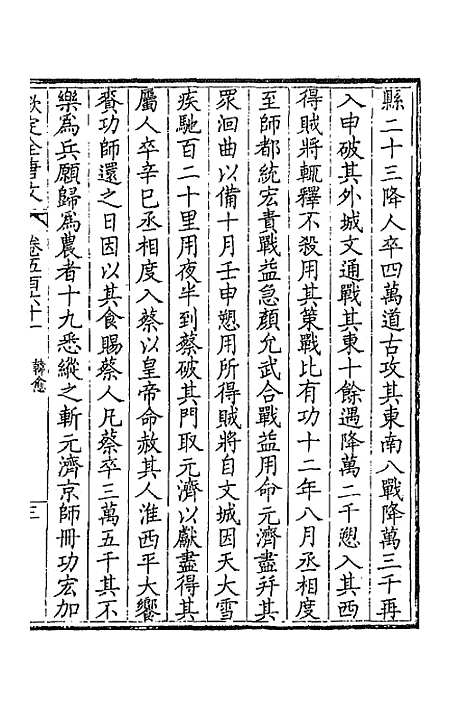 縣二十三降人卒四萬道古攻其東南八戰降萬三千再
入申破其外城文通戰其東十餘遇降萬二千愬入其西
得賊將輒釋不殺用其策戰比有功十二年八月丞相度
至師都統宏責戰益急顏允武合戰益用命元濟盡并其
眾洄曲以備十月壬申愬用所得賊將自文城因天大雪
疾馳百二十里用夜半到蔡破其門取元濟以獻盡得其
屬人卒辛巳丞相度入蔡以皇帝命赦其人淮西平大饗
賚功師還之日因以其食賜蔡人凡蔡卒三萬五千其不
樂為兵願歸為農者十九悉縱之斬元濟京師冊功宏加
欽定全唐文 卷五百六十一 韓愈 三